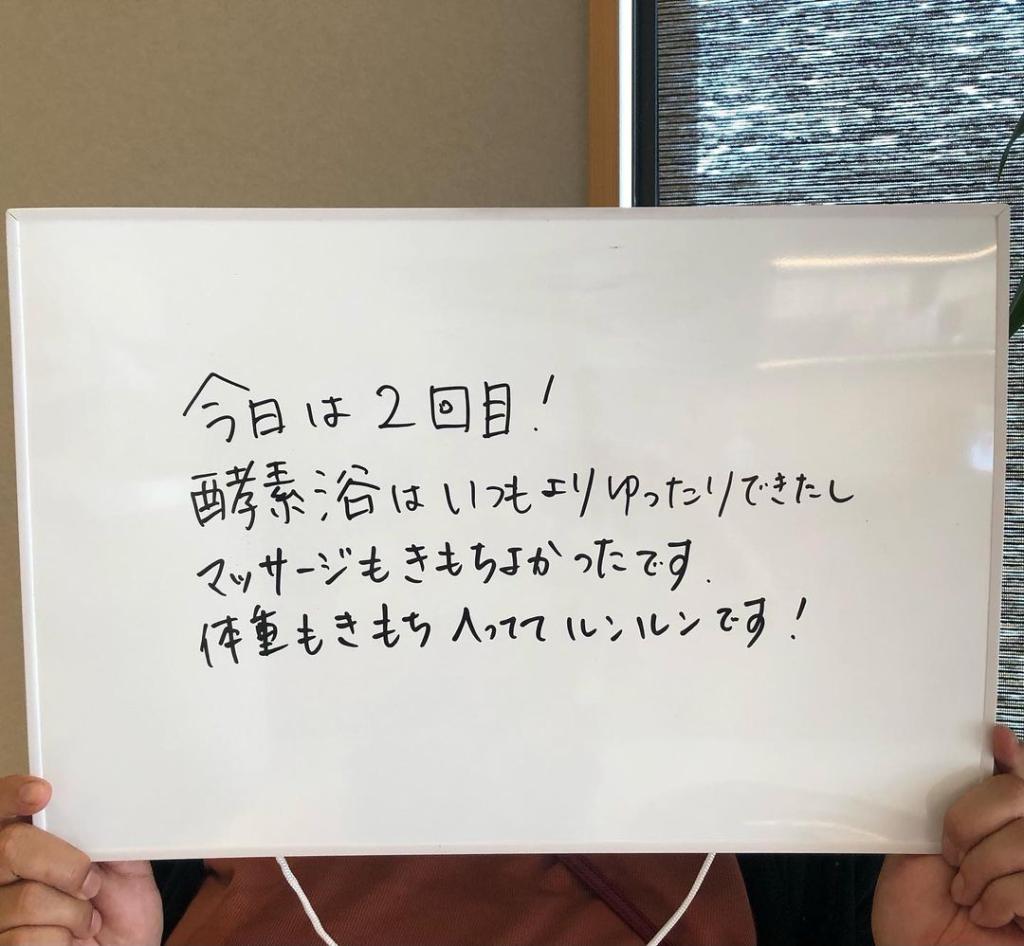 今日は2回目!
酵素浴はいつもよりゆったりできたし
マッサージもきもちよかったです.
体重もきもちへっててルンルンです!